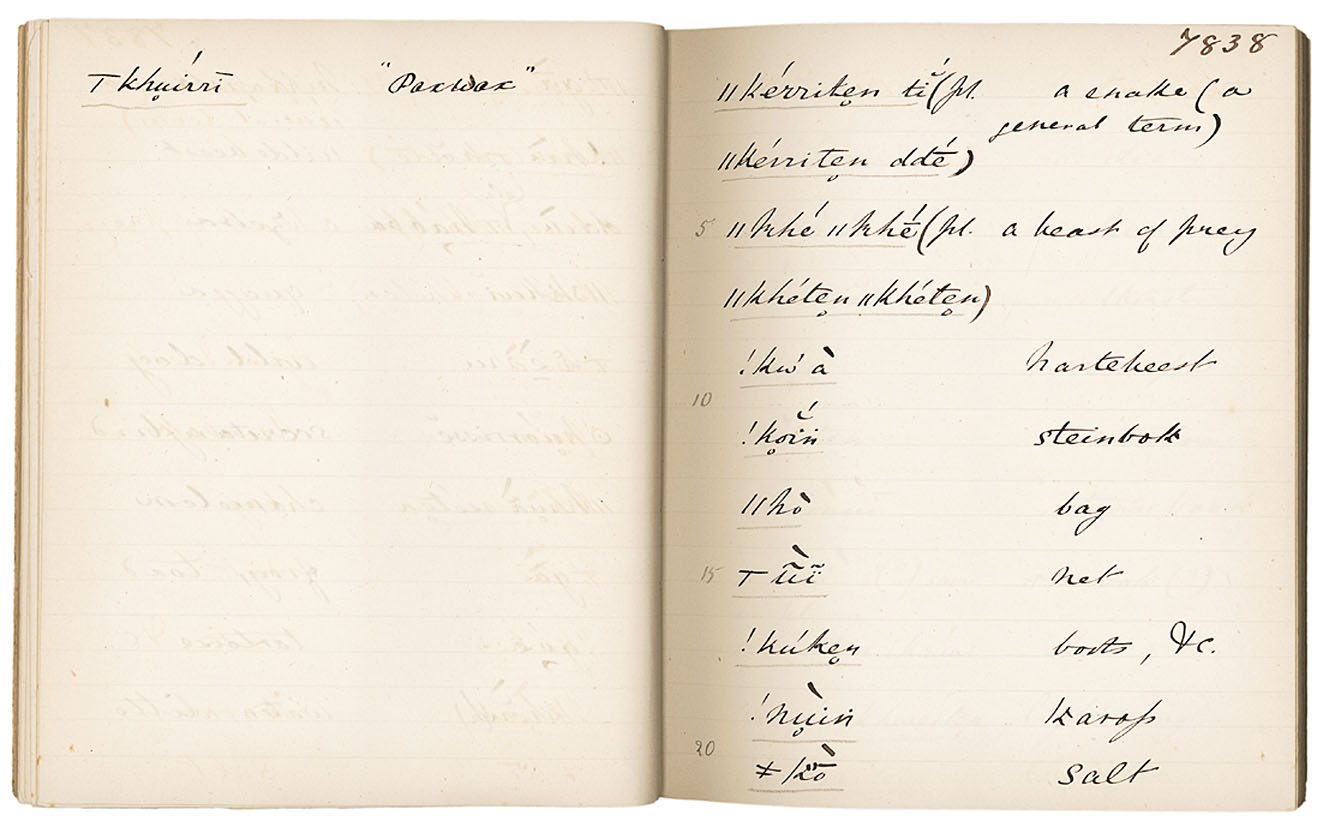 ⊤ khu̥írrī "Paxwax"
7838
ǁkérrite̥n tĭ (pl. a snake (a
general term)
ǁkérrite̥n ddé)
5 ǁkhé ǁkhé̄ (pl. a beast of prey
ǁkhéte̥n ǁkhéte̥n)
!kw' à hartebeest
10
!ko̥iṅ steinbok
ǁhò bag
15 net
!kúke̥n boots, &c.
!nu̥iṅ kaross
20
ǂkò̄ salt